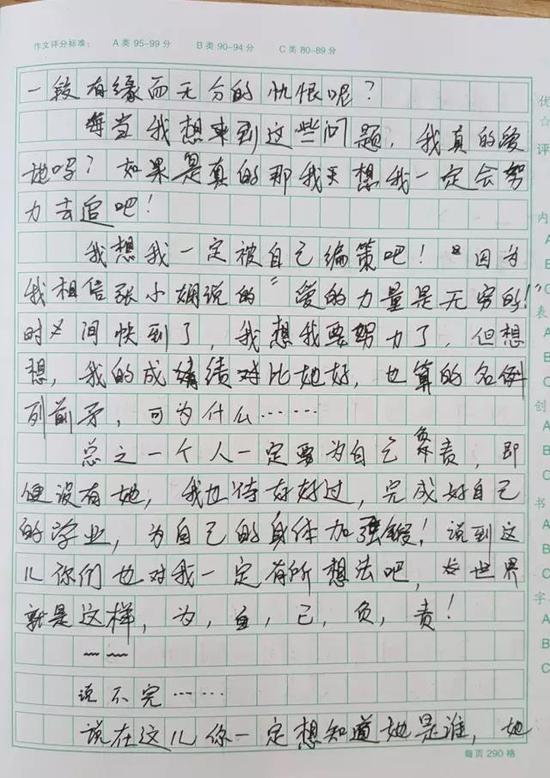 作文评分标准: A 类 95-99 分 B 类 90-94 分 C 类 80-89 分
一段有缘而无分的仇恨呢?
每当我想来到这些问题,我真的爱
她吗?如果是真的那我天想我一定会努
力去追吧!
我想我一定被自己编策吧!因为
我相信张小娴说的“爱的力量是无穷的!”
时间快到了,我想我要努力了,但想
想,我的成绩对比她好,也算的名例
列前矛,可为什么……
总之一个人一定要为自己负责,即
便没有她,我也待好好过,完成好自己
的学业,为自己的身体加强锻!说到这
儿你们也对我一定有所想法吧,世界
就是这样,为,自,己,负,责!
~~
说不完……
说在这儿你一定想知道她是谁,她
每页 290 格
优
☆
评
内
A
B
C
表
A
B
C
创
A
B
C
书
A
字
A
B
C